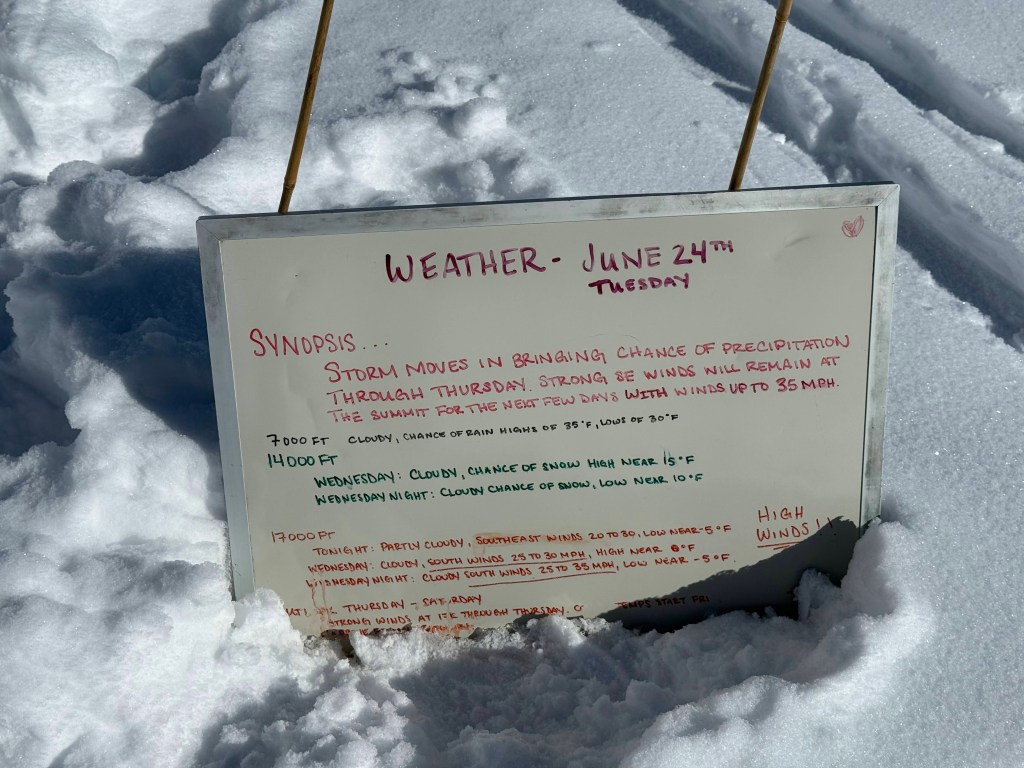 WEATHER - JUNE 24TH
TUESDAY
SYNOPSIS...
STORM MOVES IN BRINGING CHANCE OF PRECIPITATION
THROUGH THURSDAY. STRONG SE WINDS WILL REMAIN AT
THE SUMMIT FOR THE NEXT FEW DAYS WITH WINDS UP TO 35 MPH.
7000 FT CLOUDY, CHANCE OF RAIN HIGHS OF 35°F, LOWS OF 30°F
14000 FT
WEDNESDAY: CLOUDY, CHANCE OF SNOW HIGH NEAR 15°F
WEDNESDAY NIGHT: CLOUDY CHANCE OF SNOW, LOW NEAR 10°F
17000 FT
TONIGHT: PARTLY CLOUDY, SOUTHEAST WINDS 20 TO 30, LOW NEAR -5°F
WEDNESDAY: CLOUDY, SOUTH WINDS 25 TO 30 MPH, HIGH NEAR 0°F
WEDNESDAY NIGHT: CLOUDY SOUTH WINDS 25 TO 35 MPH, LOW NEAR -5°F.
HIGH
WINDS!!
THURSDAY - SATURDAY
STRONG WINDS AT 17K THROUGH THURSDAY. TEMPS START FRI